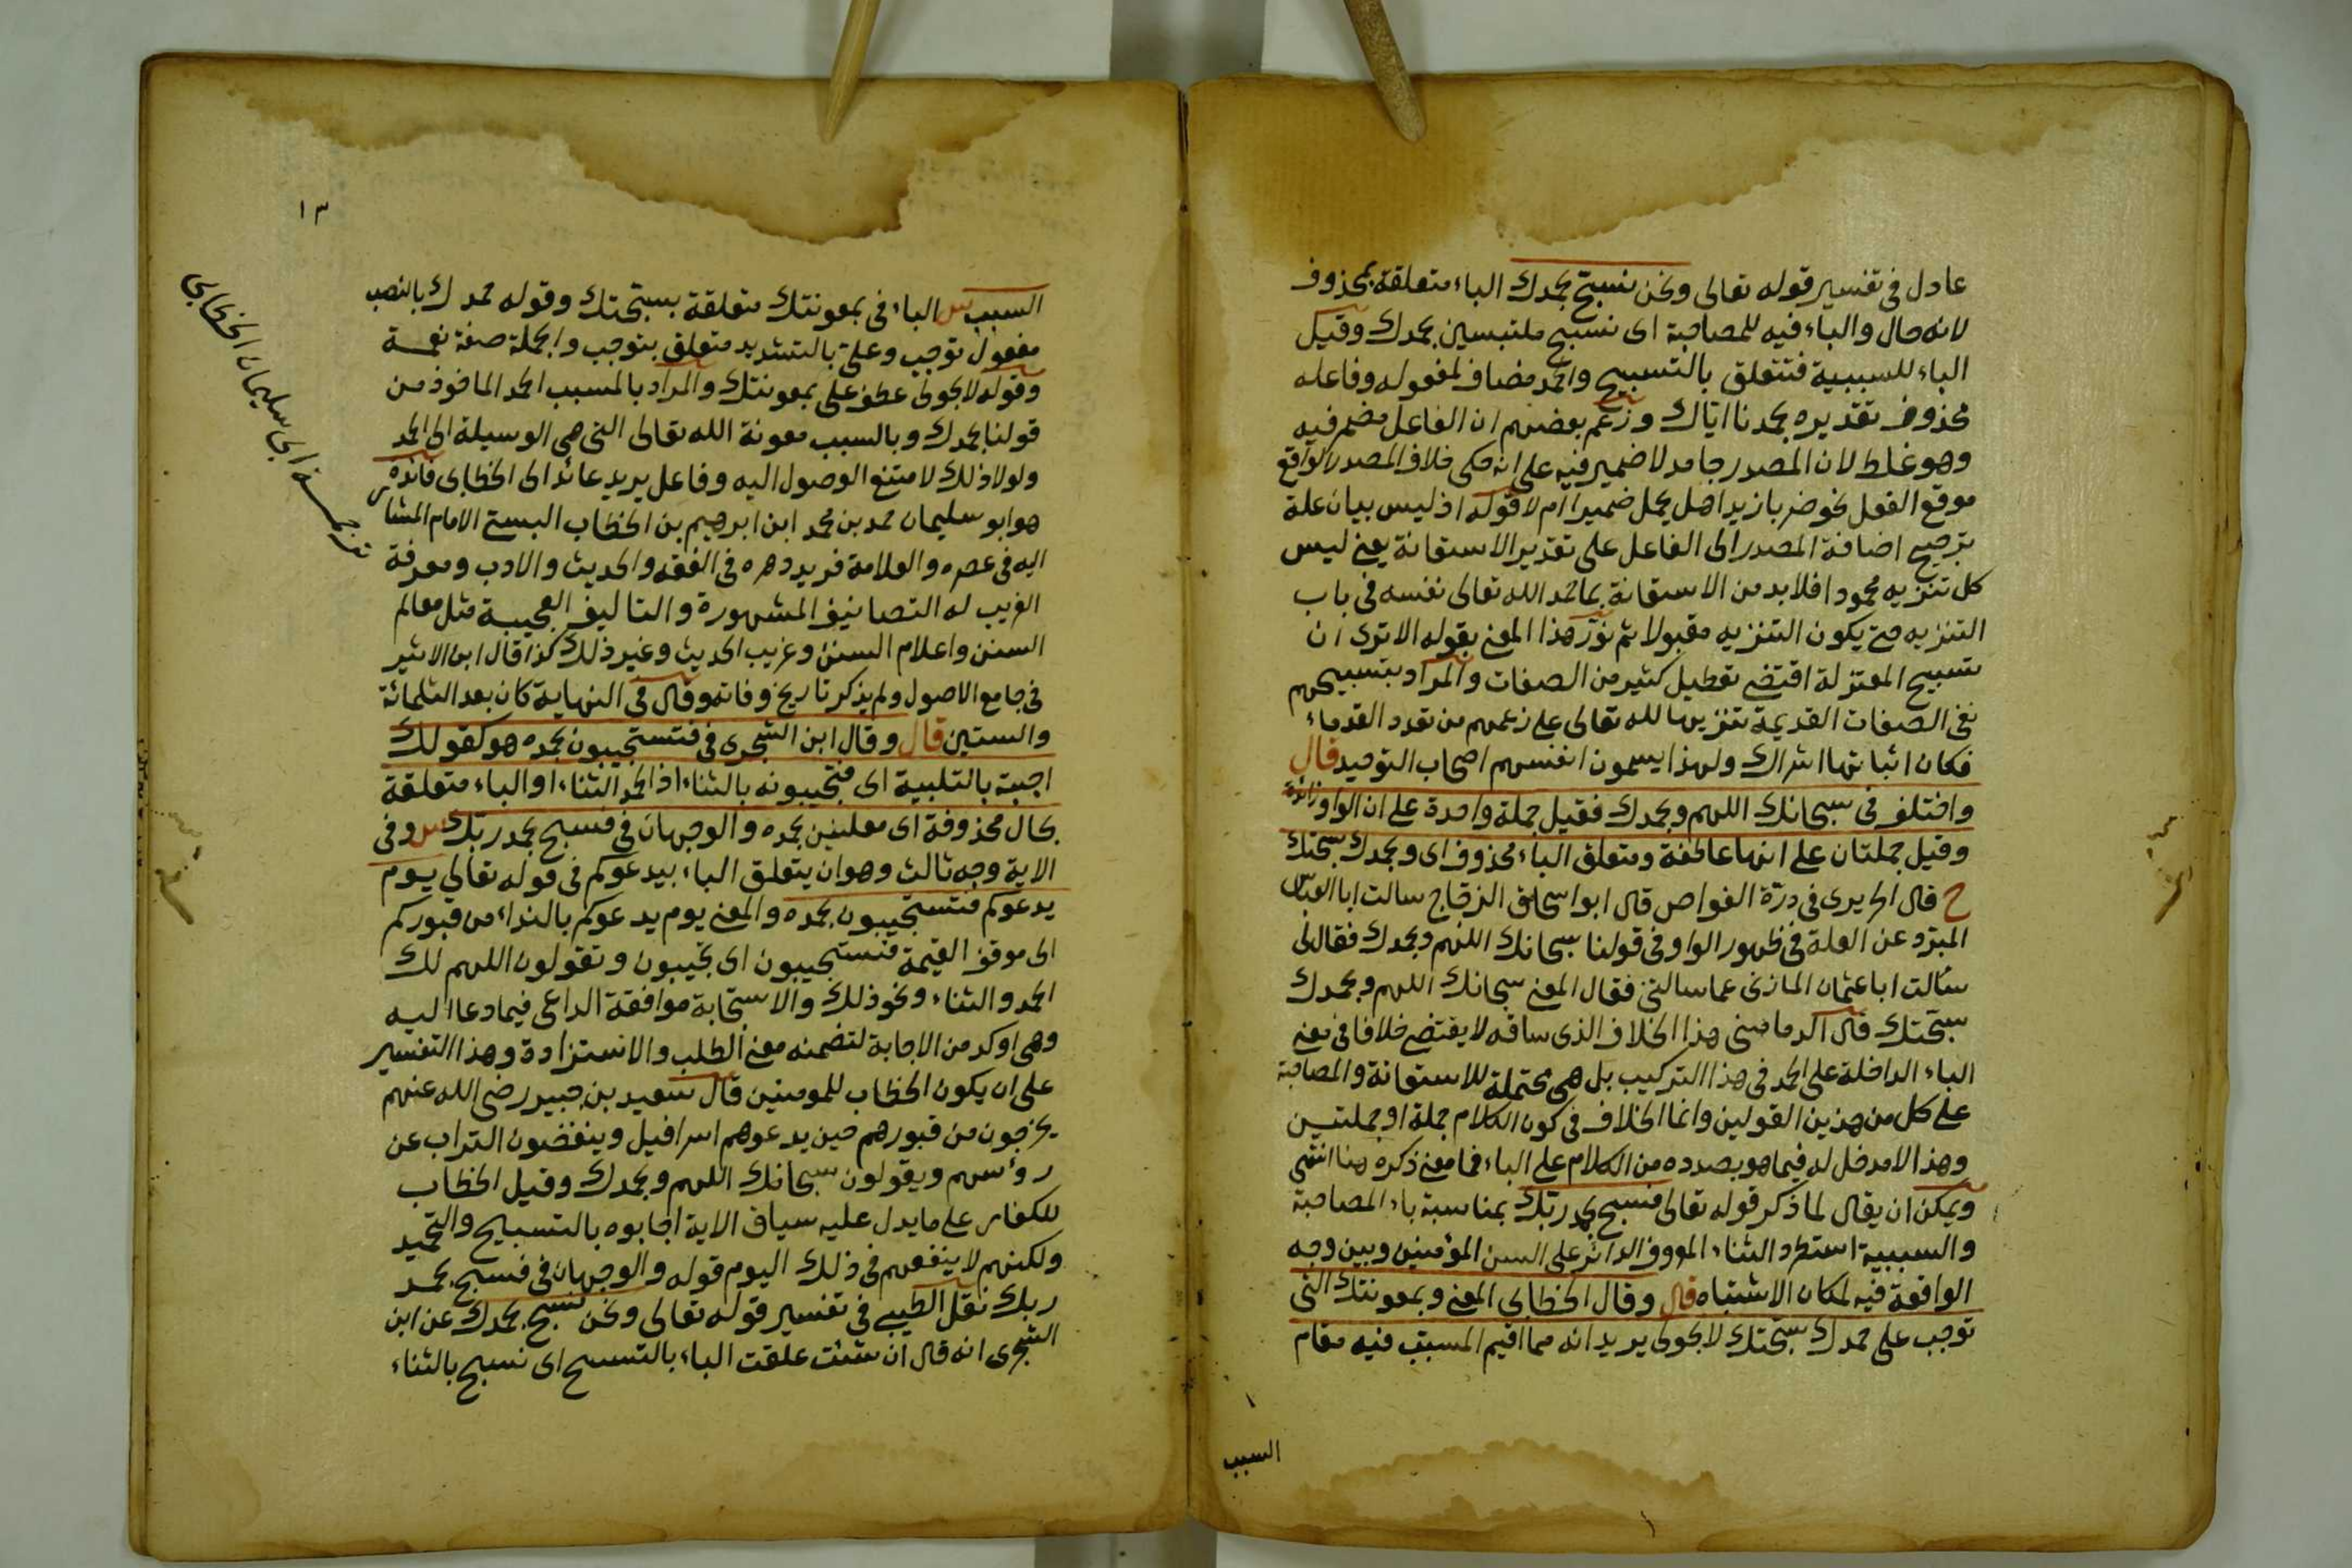 عادل في تفسير قوله تعالى ونحن نسبح بحمدك الباء متعلقة بمحذوف
لانه حال والباء فيه للمصاحبة اى نسبح ملتبسين بحمدك وقيل
الباء للسببية فتتعلق بالتسبيح والحمد مضاف لمفعوله وفاعله
محذوف تقديره بحمدنا اياك وزعم بعضهم ان الفاعل مضمر فيه
وهو غلط لان المصدر جامد لا ضمير فيه على انه حكى خلاف المصدر الواقع
موقع الفعل نحو ضربا زيدا هل يحمل ضميرا ام لا قوله اذ ليس بيان علة
ترجيح اضافة المصدر الى الفاعل على تقدير الاستعانة يعنى ليس
كل تنزيه محمودا فلابد من الاستعانة بما حمد الله تعالى نفسه في باب
التنزيه حتى يكون التنزيه مقبولا ثم نوّر هذا المعنى بقوله الا ترى ان
تسبيح المعتزلة اقتضى تعطيل كثير من الصفات والمراد بتسبيحهم
نفى الصفات القديمة تنزيها لله تعالى على زعمهم من تعدد القدماء
فكان اثباتها اشراك ولهذا يسمون انفسهم اصحاب التوحيد قال
واختلف في سبحانك اللهم وبحمدك فقيل جملة واحدة على ان الواو زائدة
وقيل جملتان على انها عاطفة ومتعلق الباء محذوف اى وبحمدك سبحتك
ح قال الحريرى في درّة الغواص قال ابو اسحاق الزجاج سالت ابا العباس
المبرّد عن العلة في ظهور الواو في قولنا سبحانك اللهم وبحمدك فقال لى
سالت ابا عثمان المازنى عما سالتنى فقال المعنى سبحانك اللهم وبحمدك
سبحتك قال الدمامينى هذا الخلاف الذى ساقه لا يقتضى خلافا في معنى
الباء الداخلة على الحمد في هذا التركيب بل هى محتملة للاستعانة والمصاحبة
على كل من هذين القولين وانما الخلاف في كون الكلام جملة او جملتين
وهذا لا مدخل له فيما هو بصدده من الكلام على الباء فما معنى ذكره هنا انتهى
ويمكن ان يقال لما ذكر قوله تعالى فسبح بحمد ربك بمناسبة باء المصاحبة
والسببية استطرد الثناء المعروف الدائر على السن المؤمنين وبين وجه
الواقعة فيه لمكان الاشتباه قال وقال الخطابى المعنى وبمعونتك التى
توجب على حمدك سبحتك لا بحولى يريد انه مما اقيم المسبب فيه مقام
السبب
١٣
السبب س الباء في بمعونتك متعلقة بسبحتك وقوله حمدك بالنصب
مفعول توجب وعلىّ بالتشديد متعلق بتوجب والجملة صفة نعمة
وقوله لا بحولى عطف على بمعونتك والمراد بالمسبب الحمد الماخوذ من
قولنا بحمدك وبالسبب معونة الله تعالى التى هى الوسيلة الى الحمد
ولولا ذلك لامتنع الوصول اليه وفاعل يريد عائد الى الخطابى فائدة
هو ابو سليمان حمد بن محمد ابن ابرهيم بن الخطاب البستى الامام المشار
اليه في عصره والعلامة فريد دهره في الفقه والحديث والادب ومعرفة
الغريب له التصانيف المشهورة والتاليف العجيبة مثل معالم
السنن واعلام السنن وغريب الحديث وغير ذلك كذا قال ابن الاثير
في جامع الاصول ولم يذكر تاريخ وفاته وقال في النهاية كان بعد الثلمائة
والستين قال وقال ابن الشجرى في فتستجيبون بحمده هو كقولك
اجبته بالتلبية اى فتجيبونه بالثناء اذ الحمد الثناء او الباء متعلقة
بحال محذوفة اى معلنين بحمده والوجهان في فسبح بحمد ربك س وفى
الاية وجه ثالث وهو ان يتعلق الباء بيدعوكم في قوله تعالى يوم
يدعوكم فتستجيبون بحمده والمعنى يوم يدعوكم بالنداء من قبوركم
الى موقف القيمة فتستجيبون اى تجيبون وتقولون اللهم لك
الحمد والثناء ونحو ذلك والاستجابة موافقة الداعى فيما دعا اليه
وهى اوكد من الاجابة لتضمنه معنى الطلب والاستزادة وهذا التفسير
على ان يكون الخطاب للمومنين قال سعيد بن جبير رضى الله عنهم
يخرجون من قبورهم حين يدعوهم اسرافيل وينفضون التراب عن
رؤسهم ويقولون سبحانك اللهم وبحمدك وقيل الخطاب
للكفار على ما يدل عليه سياق الاية اجابوه بالتسبيح والتحميد
ولكنهم لا ينفعهم في ذلك اليوم قوله والوجهان في فسبح بحمد
ربك نقل الطيبى في تفسير قوله تعالى ونحن نسبح بحمدك عن ابن
الشجرى انه قال ان شئت علقت الباء بالتسبيح اى نسبح بالثناء
ترجمة ابى سليمان الخطابى